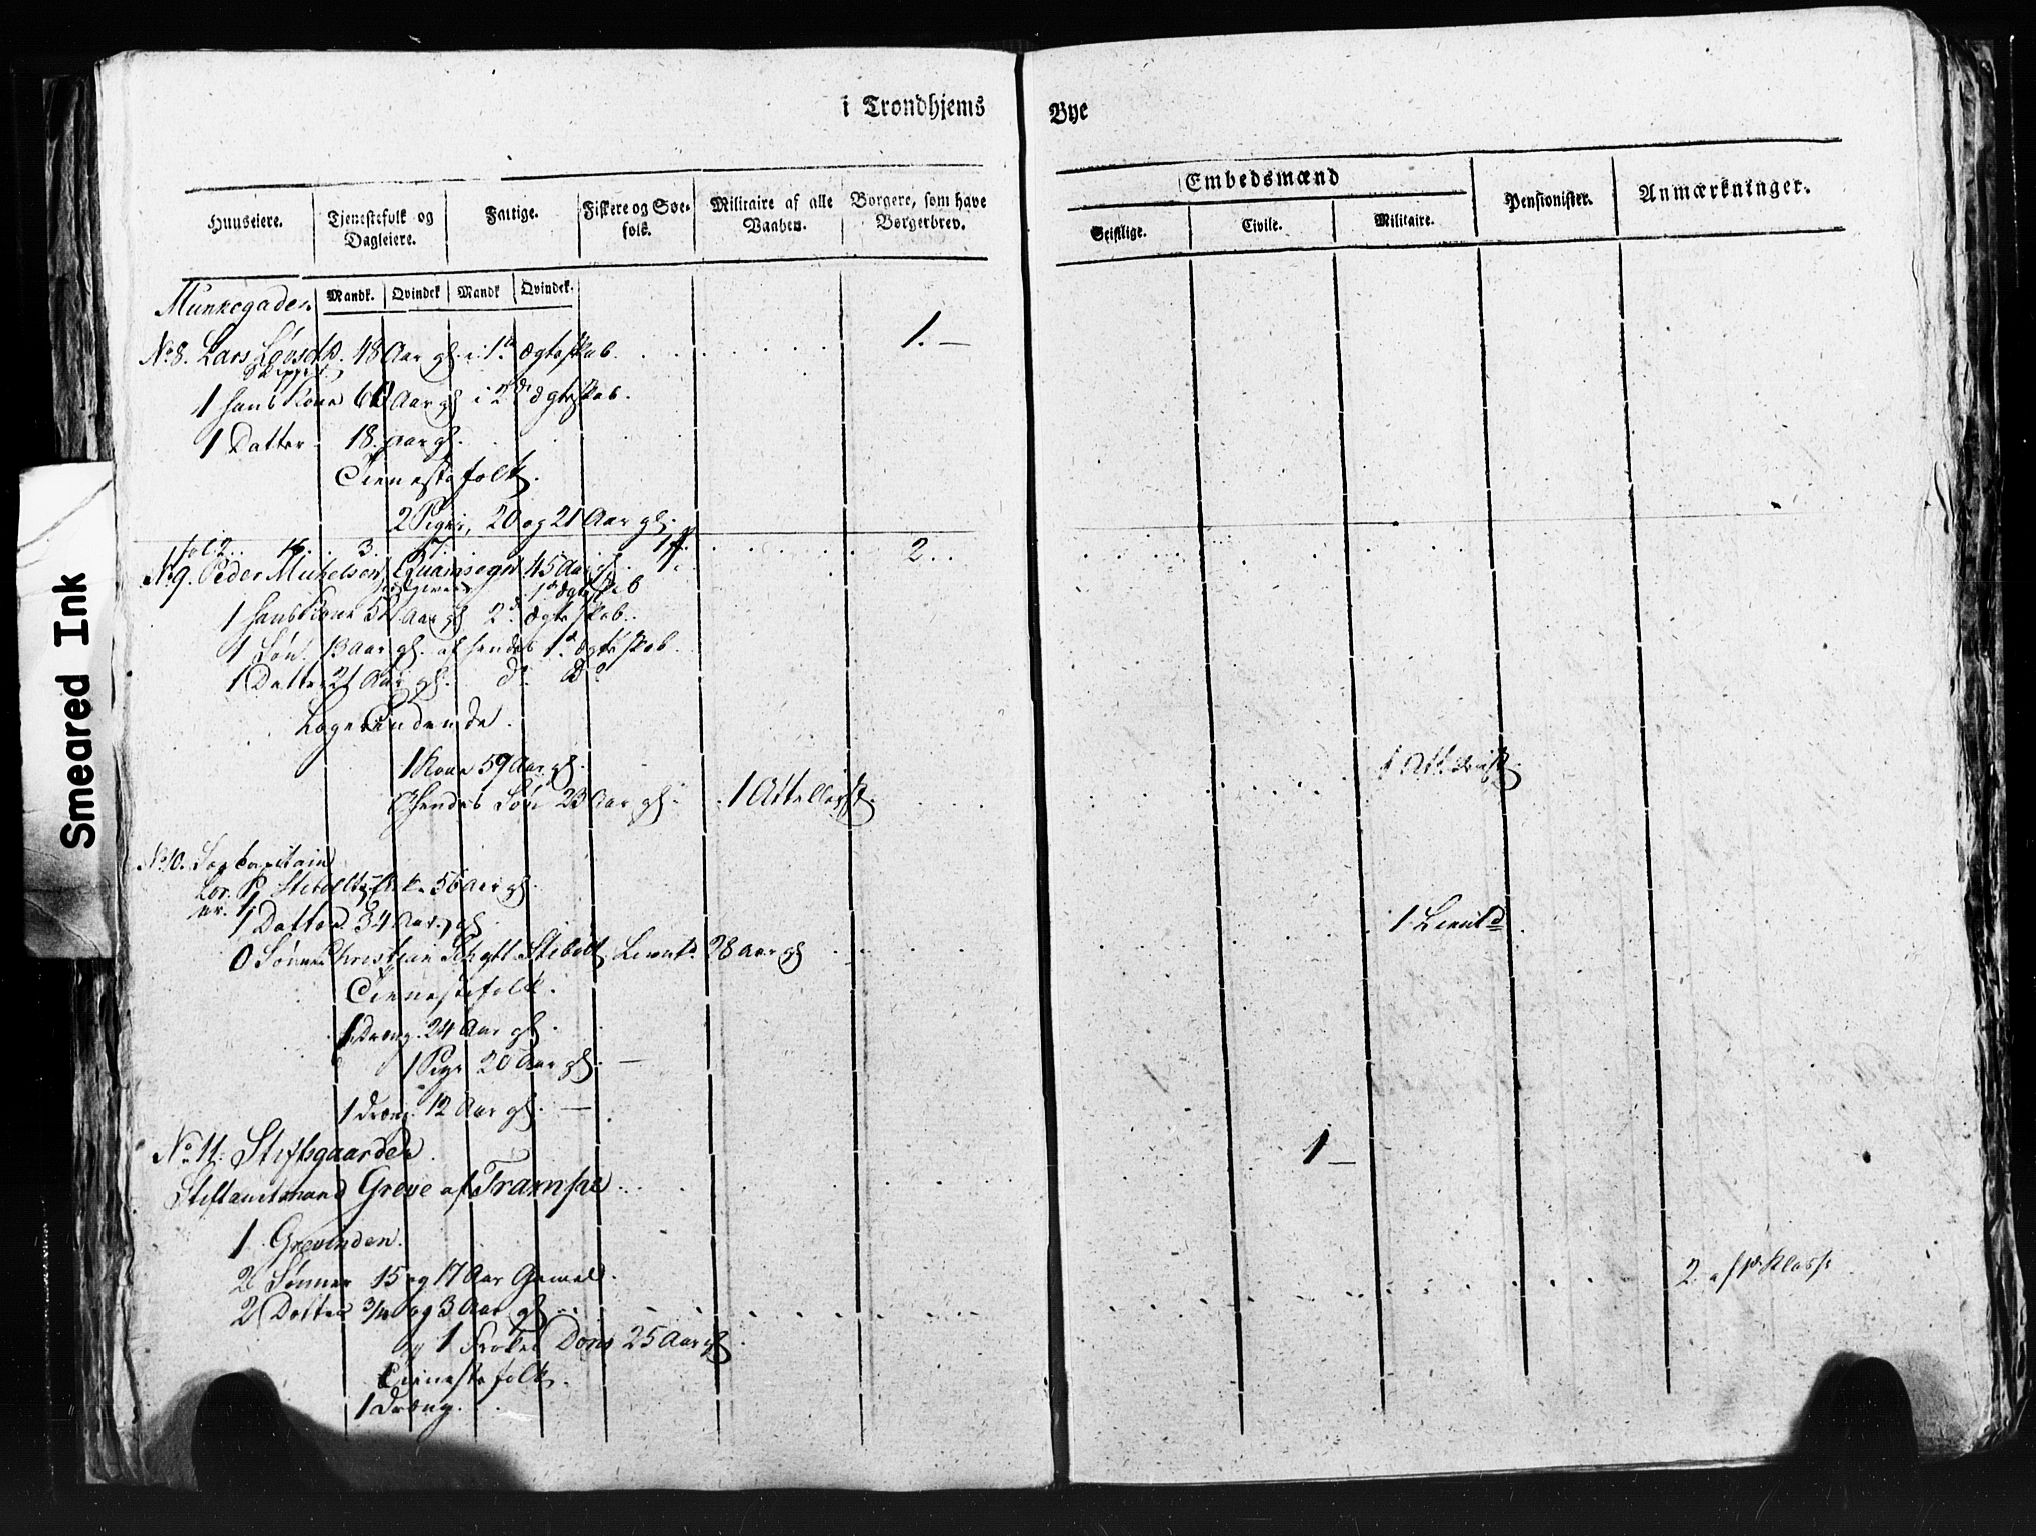 i Trondhjems Bye
Embedsmænd
Huuseiere. Tjenestefolk og Dagleiere. Fattige. Fiskere og Søefolk. Militaire af alle Vaaben. Borgere, som have Borgerbrev. Geistlige. Civile. Militaire. Pensionister. Anmærkninger.
Mandk. Qvindek Mandk Qvindek.
Munkegaden.
No 8. Lars 48 Aar gl. i 1te Ægteskab. 1. –
1 hans Kone Aar gl i 2det Ægteskab.
1 Datter 18 Aar gl.
Tienestefolk.
2 Piger, 20 og 21 Aar gl.
2..
No 9. Peder Michelsen 45 Aar gl.
1ste Ægteskab
1 hans Kone Aar gl 2d Ægteskab.
1 Søn 13 Aar gl. af hendes 1te Ægteskab.
1 Datter 21 Aar gl. do Do
Logerendende.
1 Kone 59 Aar gl.
Hendes Søn 23 Aar gl. 1 Artellerist.
No 10. Søe Capitain
Stibolts Enke 56 Aar gl.
1 Datter 34 Aar gl
0 Sønnen Christian Stibolt Lieut. 28 Aar gl 1 Lieut
Tienestefolk.
1 Dreng 24 Aar gl.
1 Pige 20 Aar gl. –
1 Dreng 12 Aar gl. –
No 11. Stiftsgaarden.
Stiftamtmand Greve af Trampe 1 –
1 Grevinden.
2 Sønner 15 og 17 Aar Gamel.
2 Døtter og 3 Aar gl 2. af Klasse
og 1 Frøken 25 Aar gl
Tienestefolk.
1 Dreng.
Smeared Ink